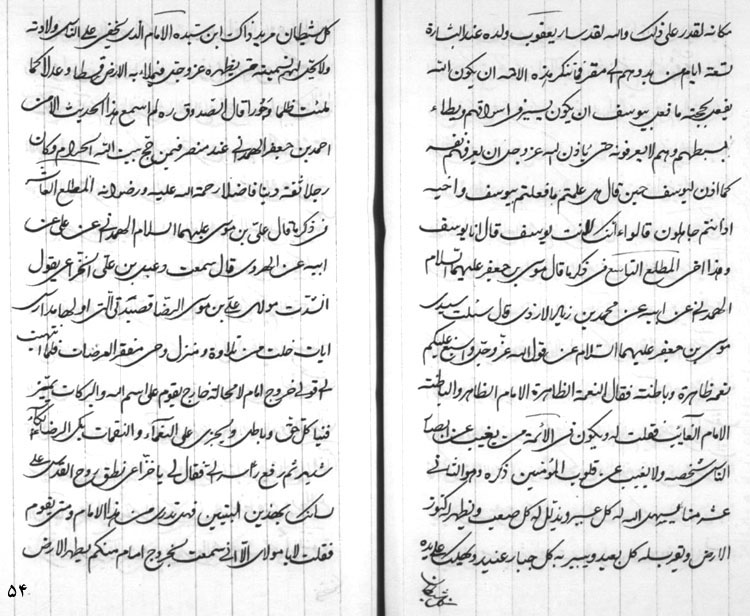 مكانه لقدر على ذلك والله لقد سار يعقوب وولده عند البشارة
تسعة ايام من بدوهم الى مصر فما تنكر هذه الامة ان يكون الله
يفعل بحجته ما فعل بيوسف ان يكون يسير فى اسواقهم ويطاء
بسطهم وهم لا يعرفونه حتى ياذن الله عز وجل ان يعرفهم نفسه
كما اذن ليوسف حين قال هل علمتم ما فعلتم بيوسف واخيه
اذ انتم جاهلون قالوا ءانك لانت يوسف قال انا يوسف
وهذا اخى المطلع التاسع فى ذكر ما قال موسى بن جعفر عليهما السلام
الهمدانى عن ابيه عن محمد بن زياد الازدى قال سئلت سيدى
موسى بن جعفر عليهما السلام عن قول الله عز وجل واسبغ عليكم
نعمه ظاهرة وباطنة فقال النعمة الظاهرة الامام الظاهر والباطنة
الامام الغائب فقلت له ويكون فى الائمة من يغيب عن ابصار
الناس شخصه ولا يغيب عن قلوب المؤمنين ذكره وهو الثانى
عشر منا يسهل الله له كل عسير ويذلل له كل صعب ويظهر له كنوز
الارض ويقرب له كل بعيد ويبير به كل جبار عنيد ويهلك على يده
كل شيطان مريد ذاك ابن سيدة الامام الذى يخفى على الناس ولادته
ولا يحل لهم تسميته حتى يظهره عز وجل فيملاء به الارض قسطا وعدلا كما
ملئت ظلما وجورا قال الصدوق ره لم اسمع هذا الحديث الا من
احمد بن جعفر الهمدانى عند منصرفى من حج بيت الله الحرام وكان
رجلا ثقة دينا فاضلا رحمة الله عليه ورضوانه المطلع العاشر
فى ذكر ما قال على بن موسى عليهما السلام الهمدانى عن على عن
ابيه عن الهروى قال سمعت دعبل بن على الخزاعى يقول
انشدت مولاى على بن موسى الرضا قصيدتى التى اولها مدارس
ايات خلت من تلاوة ومنزل وحى مقفر العرصات فلما انتهيت
الى قولى خروج امام لا محالة خارج يقوم على اسم الله والبركات يميز
فينا كل حق وباطل ويجزى على النعماء والنقمات بكى الرضا بكاء
شديدا ثم رفع راسه الى فقال لى يا خزاعى نطق روح القدس على
لسانك بهذين البيتين فهل تدرى من هذا الامام ومتى يقوم
فقلت لا يا مولاى الا انى سمعت بخروج امام منكم يطهر الارض
۵۴